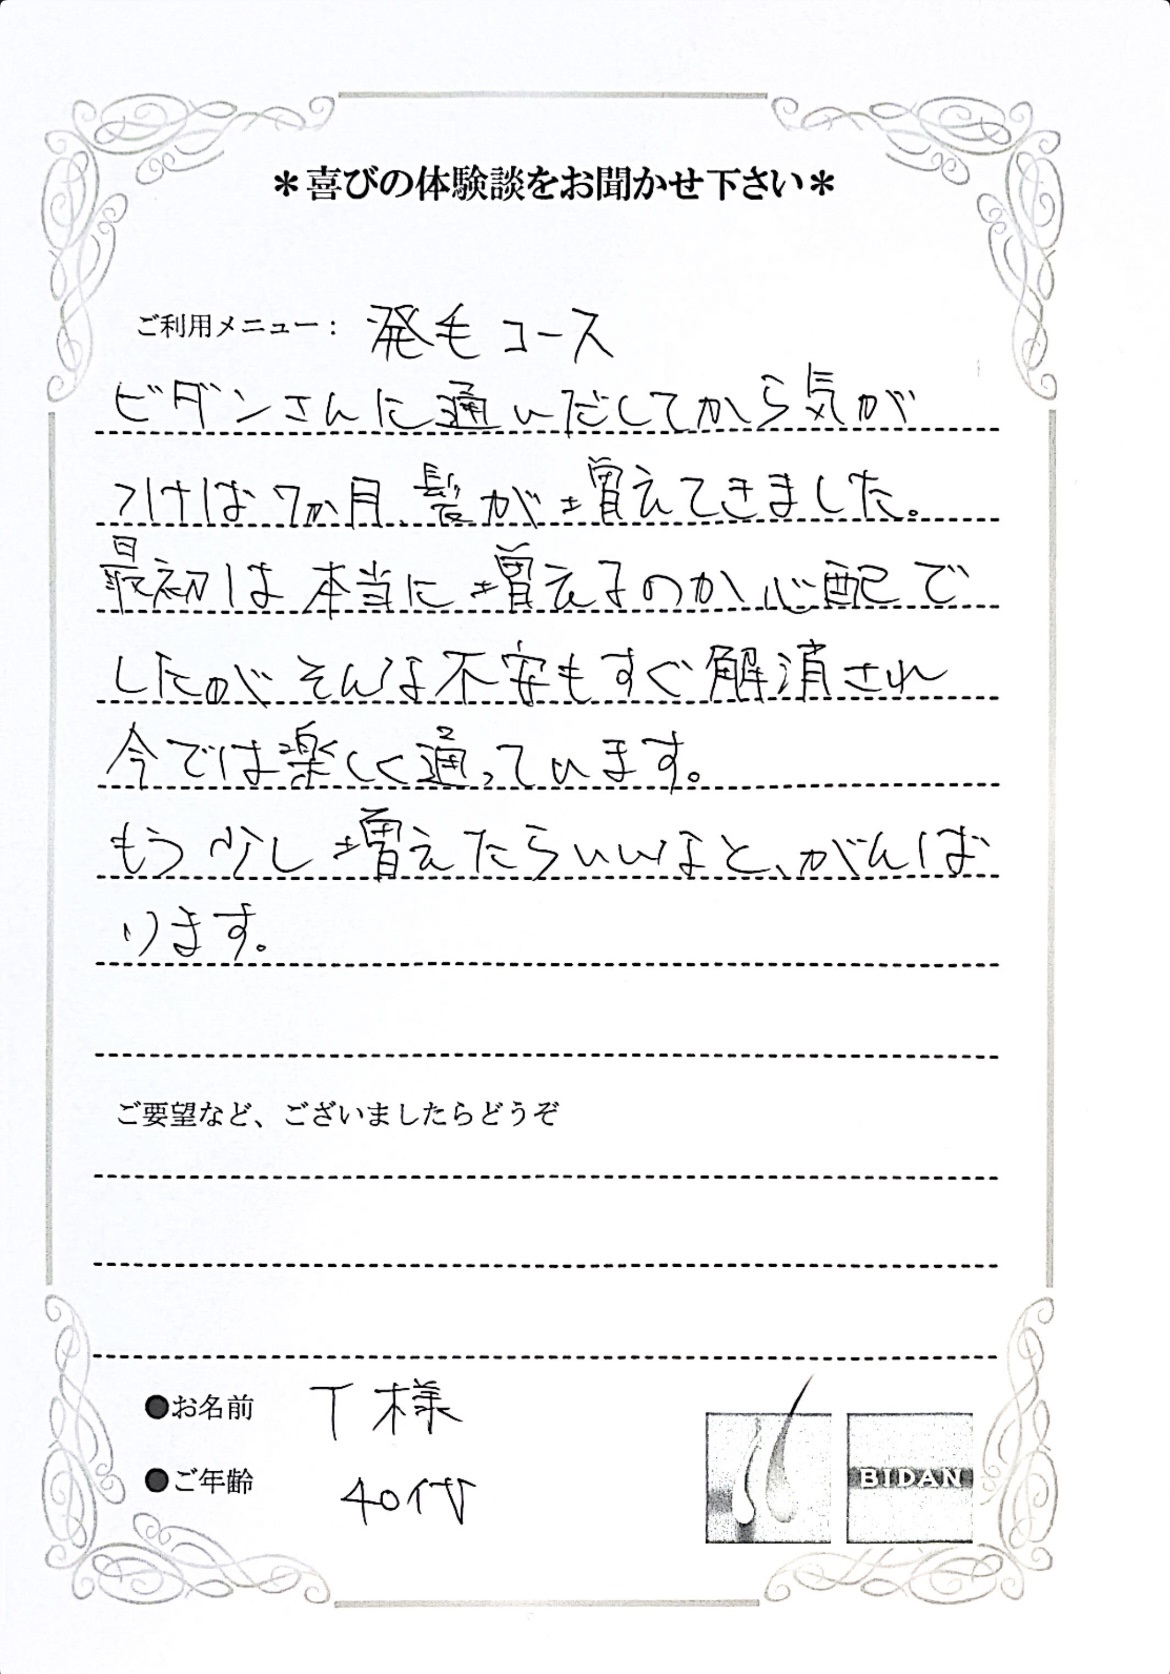 ＊喜びの体験談をお聞かせ下さい＊
ご利用メニュー： 発毛コース
ビダンさんに通いだしてから気が
つけば7か月、髪が増えてきました。
最初は本当に増えるのか心配で
したが そんな不安もすぐ解消され
今では楽しく通っています。
もう少し増えたらいいなと、がんば
ります。
ご要望など、ございましたらどうぞ
●お名前 T様
●ご年齢 40代
BIDAN